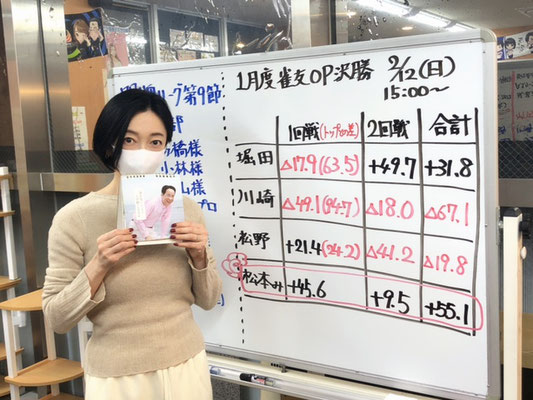 リーグ第9節
部
橋様
小林様
山様
プロ
1月度雀支OP決勝 2/12(日)
15:00〜
1回戦(トップの差) 2回戦 合計
堀田 △17.9(63.5) +49.7 +31.8
川崎 △49.1(94.7) △18.0 △67.1
松野 +21.4(24.2) △41.2 △19.8
松本み +45.6 +9.5 +55.1